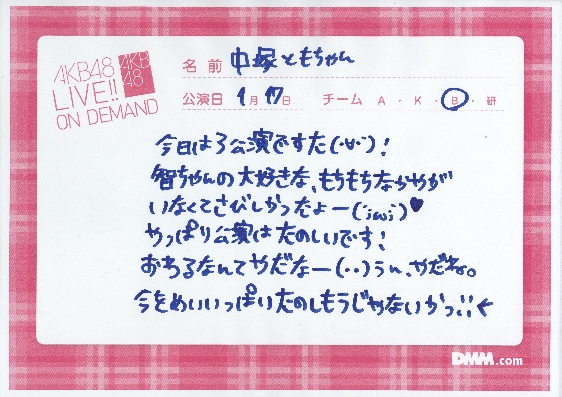 AKB48
LIVE!!
ON DEMAND
AKB
48
名前 中塚ともちゃん
公演日 1月17日 チーム A・K・B・研
今日はろ公演ですた(・∀・)!
智ちゃんの大好きな、もちもちなかやが
いなくてさびしかったよー(;ω;)♥
やっぱり公演はたのしいです!
おちるなんてやだなー(・・)うん、やだね。
今をめいいっぱいたのしもうじゃないかっ!!
DMM.com